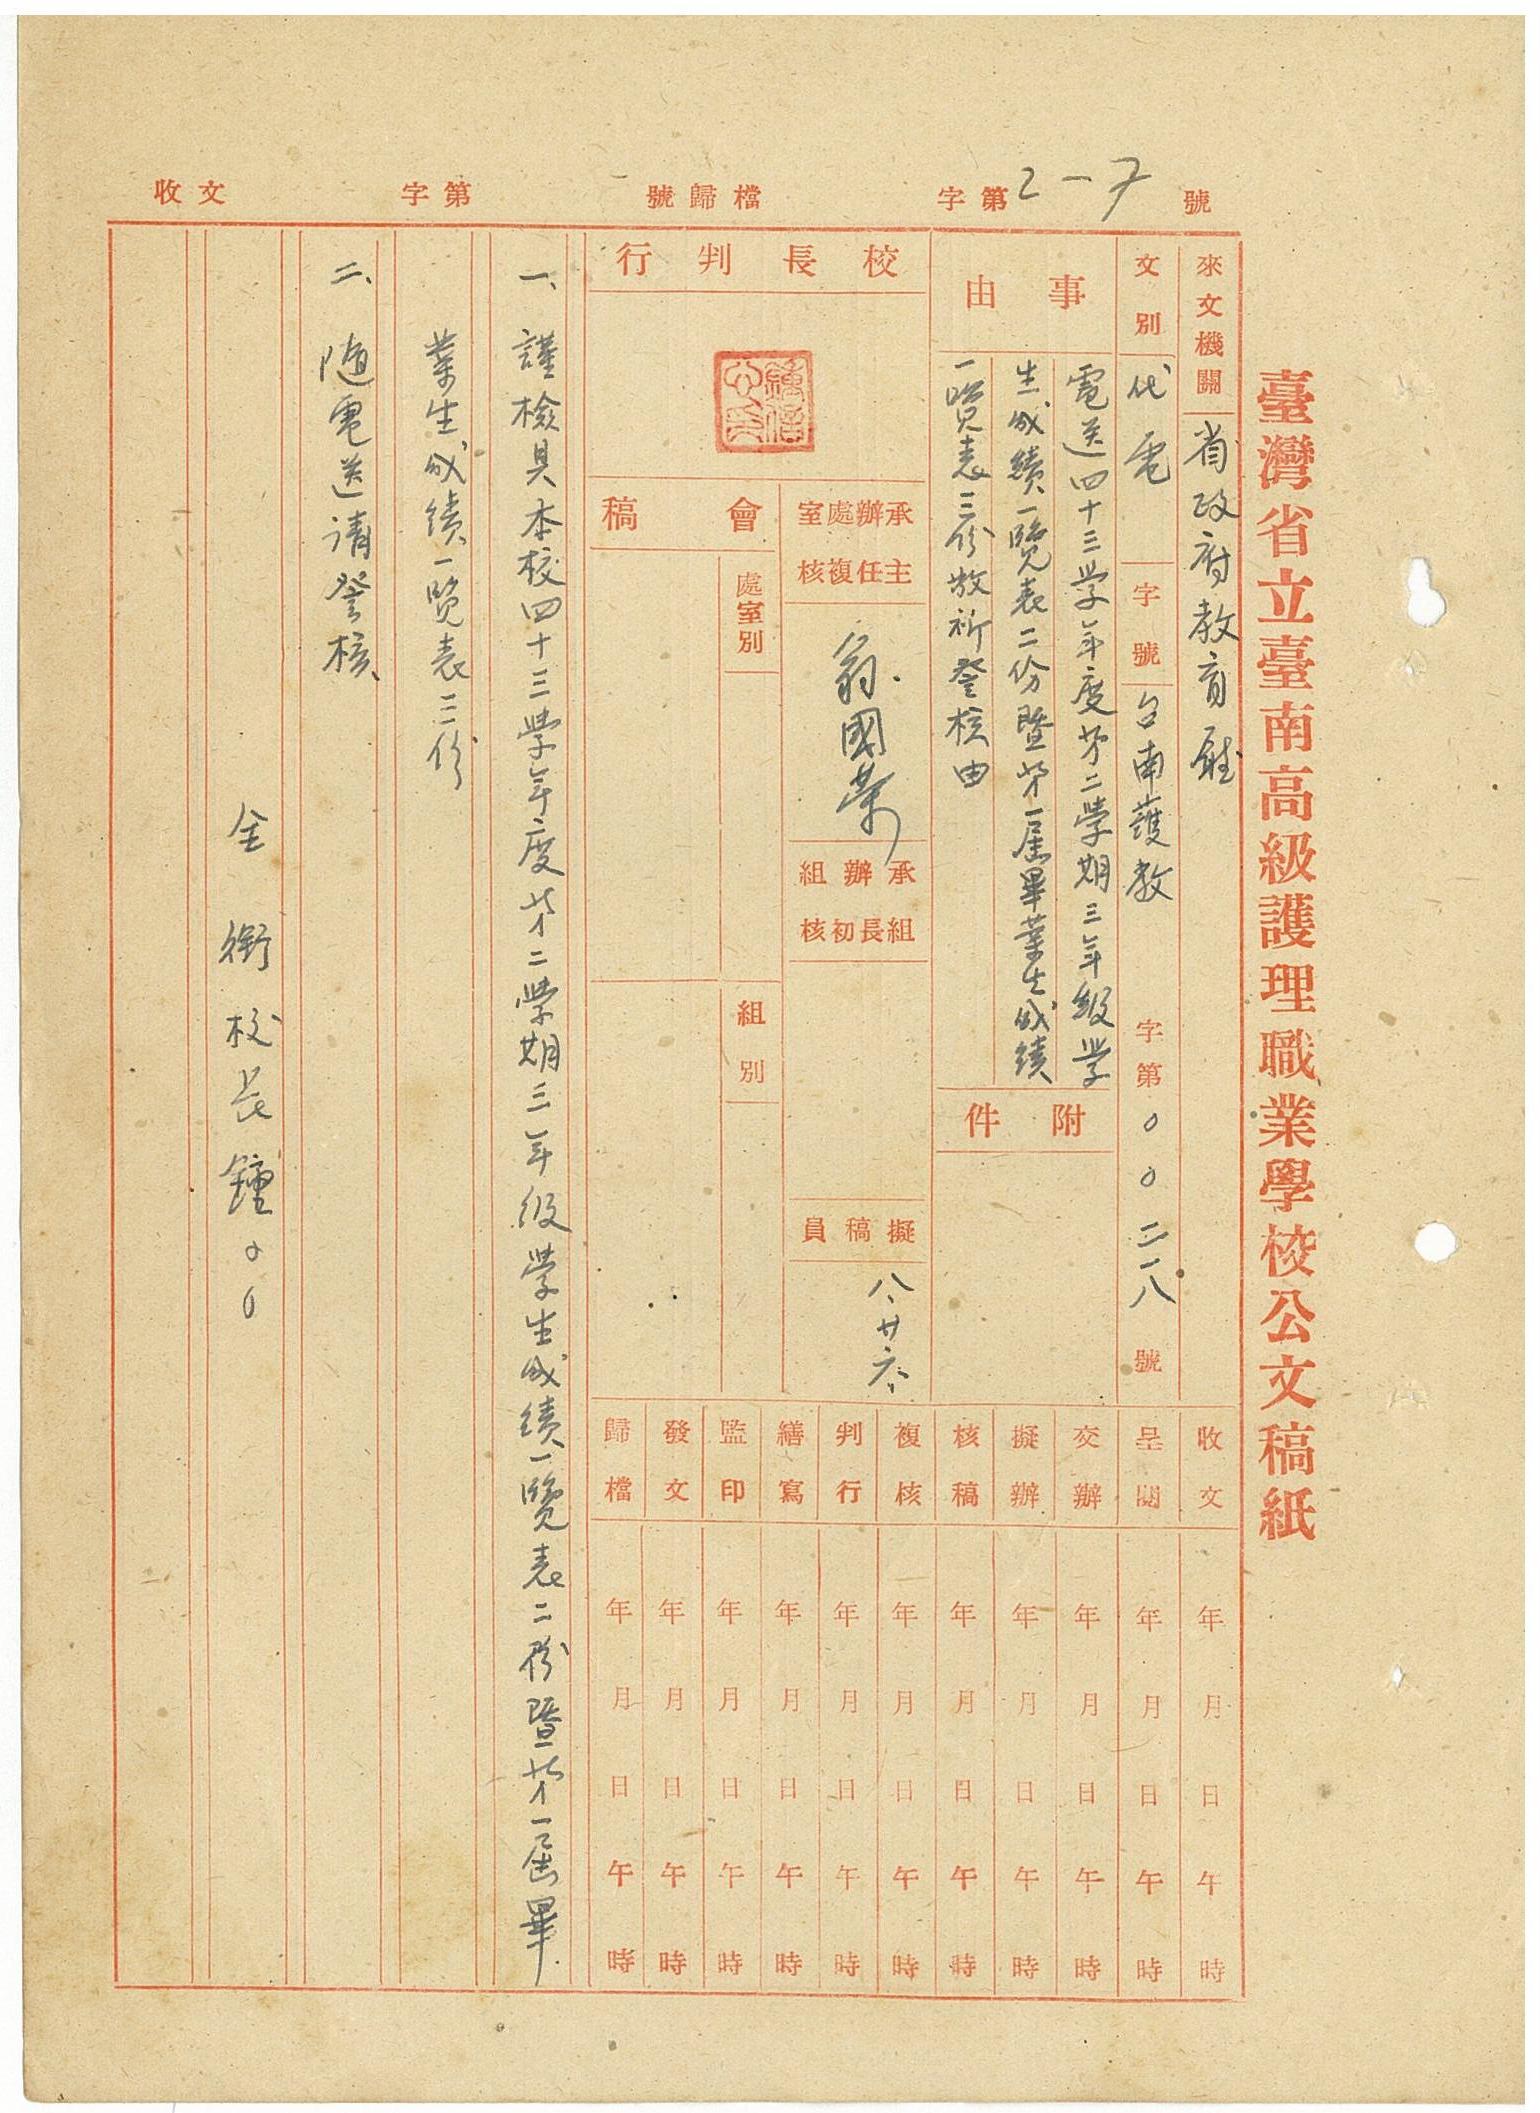 臺灣省立臺南高級護理職業學校公文稿紙
收文 字第 號歸檔 字第2-7號
來文機關 省政府教育廳
文別 代電 字號 台南護教 字第00二一八號
事由
電送四十三學年度第二學期三年級學
生成績一覽表二份暨第一屆畢業生成績
一覽表三份敬祈登核由
附件
校長判行
承辦處室
主任複核
翁國榮
承辦組
組長初核
擬稿員
八、廿六、
會稿
處室別
組別
收文 年月日午時
呈閱 年月日午時
交辦 年月日午時
擬辦 年月日午時
核稿 年月日午時
複核 年月日午時
判行 年月日午時
繕寫 年月日午時
監印 年月日午時
發文 年月日午時
歸檔 年月日午時
一、謹檢具本校四十三學年度第二學期三年級學生成績一覽表二份暨第一屆畢
業生成績一覽表三份
二、隨電送請登核
全銜校長鍾00